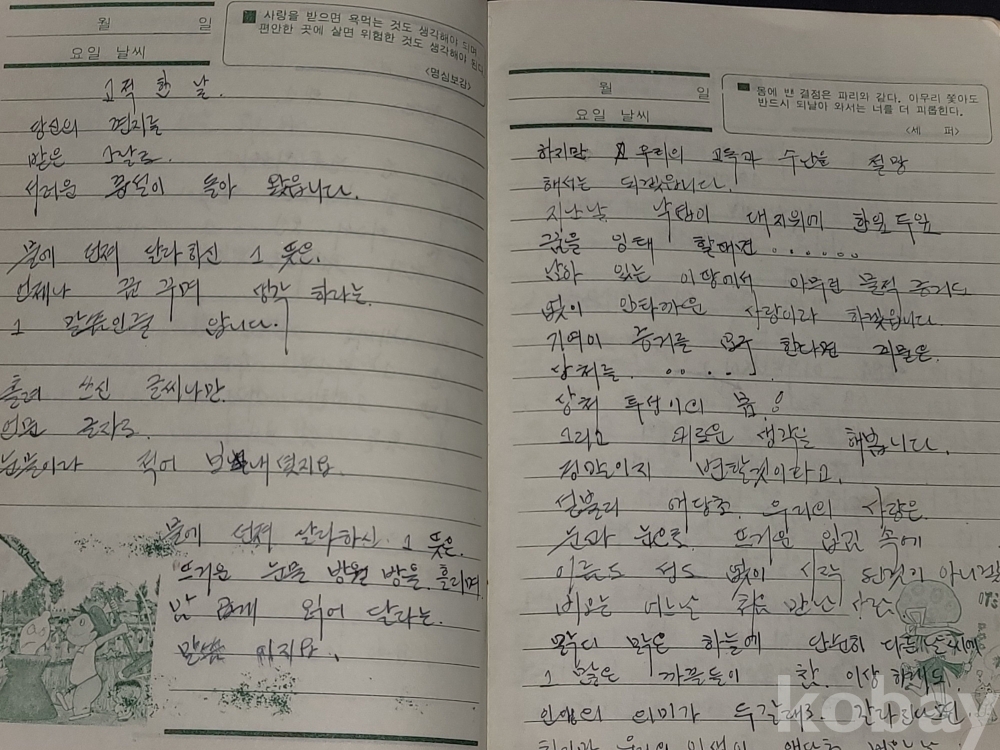 월 일
요일 날씨
사랑을 받으면 욕먹는 것도 생각해야 되며
편안한 곳에 살면 위험한 것도 생각해야 된다
<명심보감>
고적 한 날.
당신의 편지를
받은 그날로.
서러운 꿈설이 돌아 왔읍니다.
물에 던져 달라하신 그 뜻은.
언제나 꿈 꾸며 생각 하라는.
그 말씀인줄 압니다.
흘려 쓰신 글씨나만.
글자로.
눈물이라 적어 보내셨지요.
물에 던져 달라하신 그 뜻은.
뜨거운 눈물 방울 방울 흘리며
맘 읽어 달라는.
말씀 이지요.
월 일
요일 날씨
몸에 밴 결점은 파리와 같다. 아무리 쫓아도
반드시 되날아 와서는 너를 더 괴롭힌다.
<세 퍼>
하지만 우리의 고독과 수난을 절망
해서는 되겠읍니다.
지난날 낙엽이 대지위에 한잎 두잎
꿈을 잉태 할때면......
남아 있는 이땅에서 아무런 물적 증거도
없이 안타까운 사랑이라 하겠읍니다.
기억이 증거를 한다면 괴물은.
상처를......
상처 투성이의 봄!
그리고 괴로운 생각을 해봅니다.
정말이지 변할것이라고.
섣불리 애당초. 우리의 사랑은.
눈과 눈으로. 뜨거운 입김 속에
이름도 성도 없이 시작 된것이 아니겠
비오는 어느날 처음 만난 사람.
맑디 맑은 하늘에
그 많은 까끌들이 찬. 이상 하래도.
인생의 의미가 두갈래로. 갈라
하지만 우리의 인생이 애당초
kobay